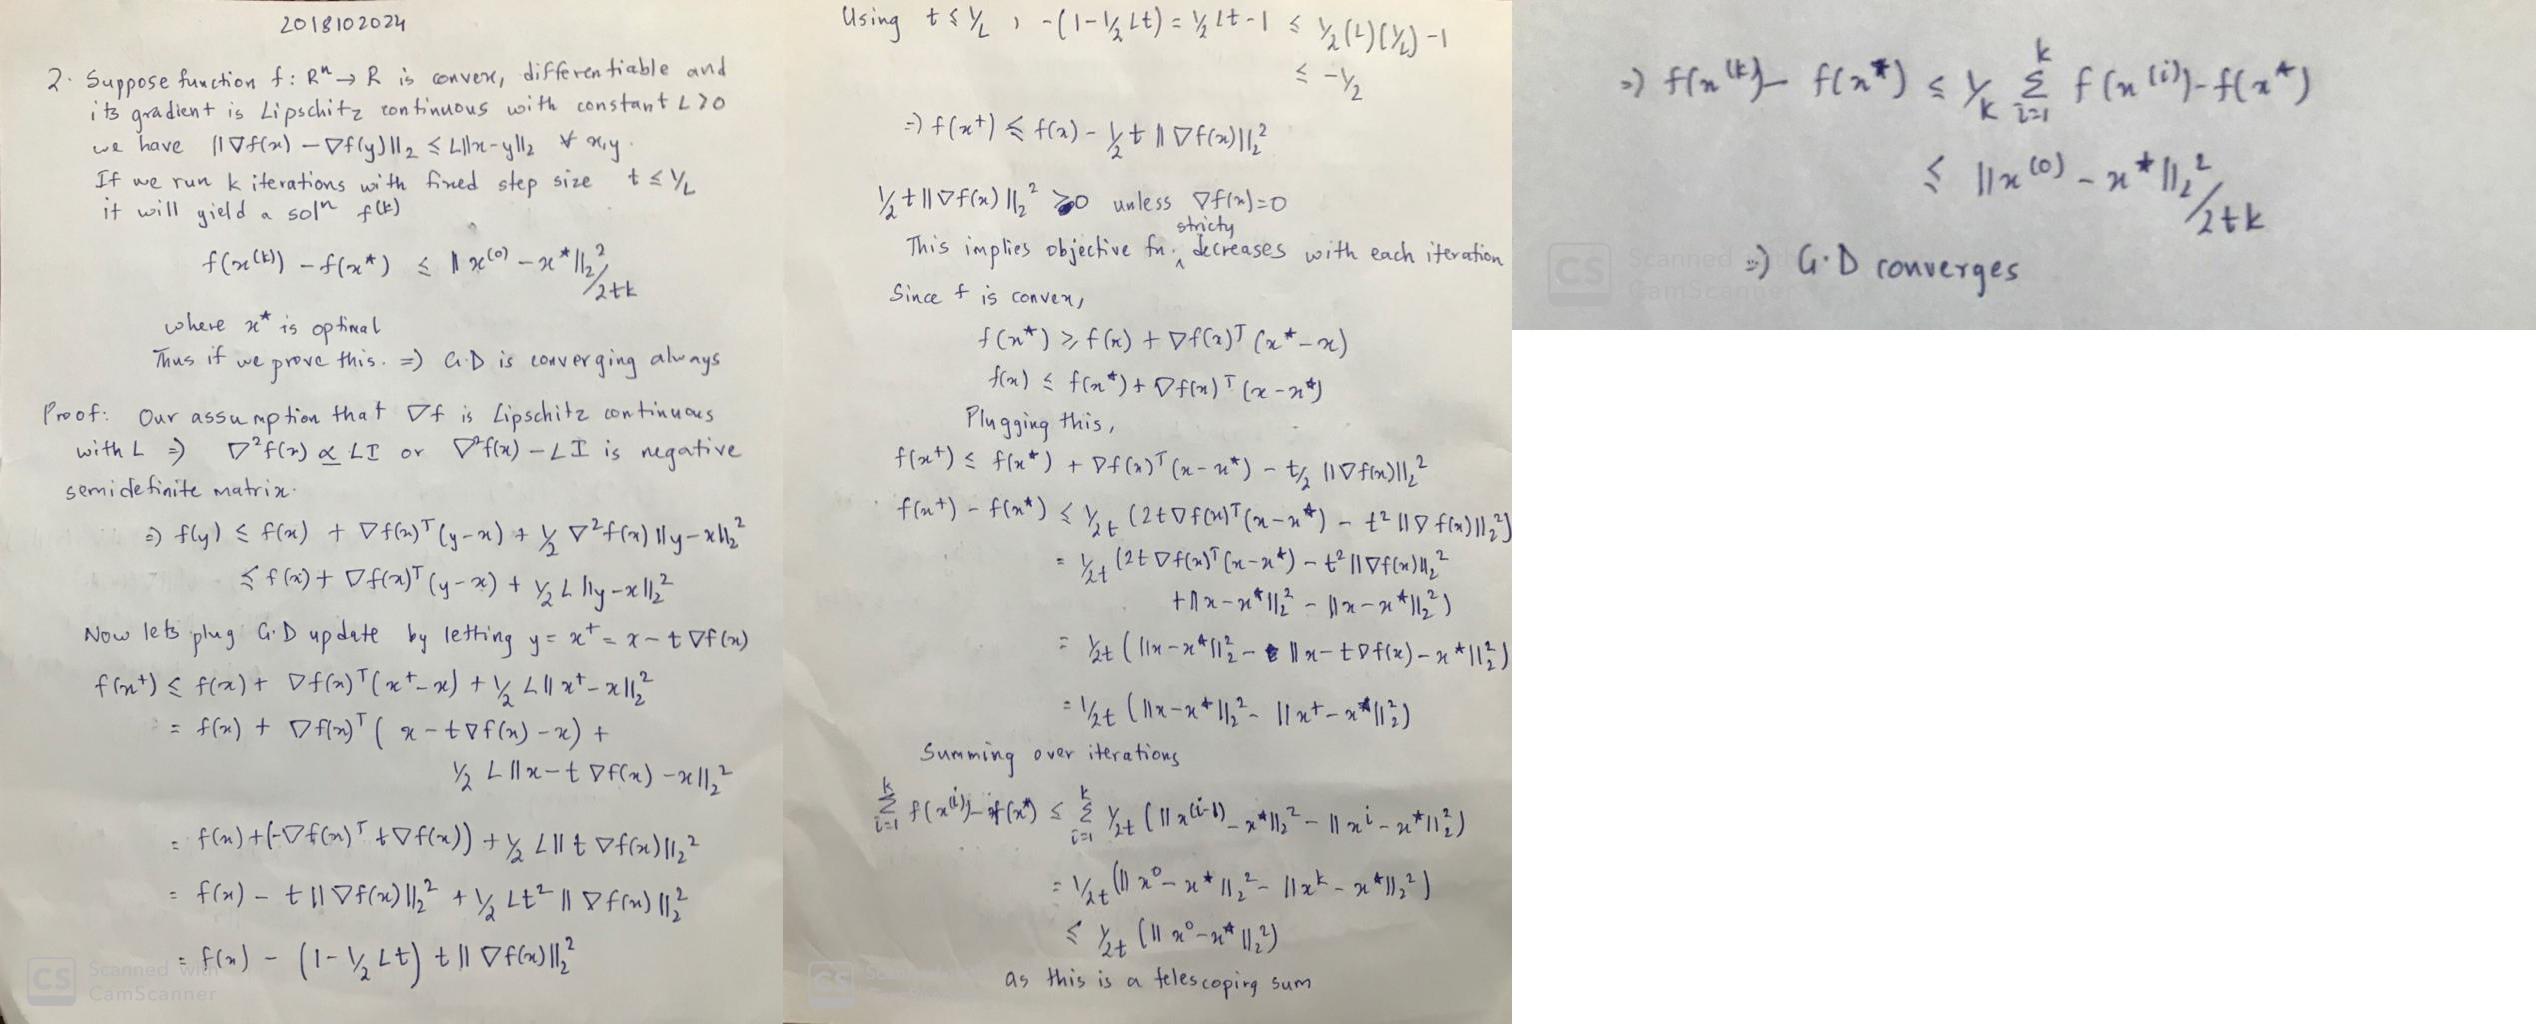 2018102024
2. Suppose function f: Rⁿ → R is convex, differentiable and
its gradient is Lipschitz continuous with constant L>0
we have ||∇f(x) − ∇f(y)||₂ ≤ L||x−y||₂ ∀ x,y.
If we run k iterations with fixed step size t ≤ 1/L
it will yield a solⁿ f^(k)
f(x^(k)) − f(x*) ≤ ||x^(0) − x*||₂²/2tk
where x* is optimal
Thus if we prove this. ⇒ G.D is converging always
Proof: Our assumption that ∇f is Lipschitz continuous
with L ⇒ ∇²f(x) ⪯ LI or ∇²f(x) − LI is negative
semidefinite matrix.
⇒ f(y) ≤ f(x) + ∇f(x)ᵀ(y−x) + 1/2 ∇²f(x) ||y−x||₂²
≤ f(x) + ∇f(x)ᵀ(y−x) + 1/2 L ||y−x||₂²
Now lets plug G.D update by letting y = x⁺ = x − t∇f(x)
f(x⁺) ≤ f(x) + ∇f(x)ᵀ(x⁺−x) + 1/2 L||x⁺−x||₂²
= f(x) + ∇f(x)ᵀ( x − t∇f(x) − x) +
1/2 L ||x − t∇f(x) − x||₂²
= f(x) + (−∇f(x)ᵀ t∇f(x)) + 1/2 L||t∇f(x)||₂²
= f(x) − t||∇f(x)||₂² + 1/2 Lt² ||∇f(x)||₂²
= f(x) − (1 − 1/2 Lt) t||∇f(x)||₂²
CS Scanned with
CamScanner
Using t ≤ 1/L , −(1−1/2 Lt) = 1/2 Lt − 1 ≤ 1/2(L)(1/L) − 1
≤ −1/2
⇒ f(x⁺) ≤ f(x) − 1/2 t ||∇f(x)||₂²
1/2 t||∇f(x)||₂² >0 unless ∇f(x)=0
stricty
This implies objective fn. ^ decreases with each iteration
Since f is convex,
f(x*) ≥ f(x) + ∇f(x)ᵀ(x*−x)
f(x) ≤ f(x*) + ∇f(x)ᵀ(x−x*)
Plugging this,
f(x⁺) ≤ f(x*) + ∇f(x)ᵀ(x−x*) − t/2 ||∇f(x)||₂²
f(x⁺) − f(x*) ≤ 1/2t (2t∇f(x)ᵀ(x−x*) − t²||∇f(x)||₂²)
= 1/2t (2t∇f(x)ᵀ(x−x*) − t²||∇f(x)||₂²
+||x−x*||₂² − ||x−x*||₂²)
= 1/2t (||x−x*||₂² − ||x−t∇f(x)−x*||₂²)
= 1/2t (||x−x*||₂² − ||x⁺−x*||₂²)
Summing over iterations
Σᵢ₌₁ᵏ f(x^(i)) − f(x*) ≤ Σᵢ₌₁ᵏ 1/2t (||x^(i−1) − x*||₂² − ||xⁱ − x*||₂²)
= 1/2t (||x⁰−x*||₂² − ||xᵏ−x*||₂²)
≤ 1/2t (||x⁰−x*||₂²)
as this is a telescoping sum
CS
⇒ f(x^(k)) − f(x*) ≤ 1/k Σᵢ₌₁ᵏ f(x^(i)) − f(x*)
≤ ||x^(0) − x*||₂²/2tk
⇒ G.D converges
CS Scanned with
CamScanner